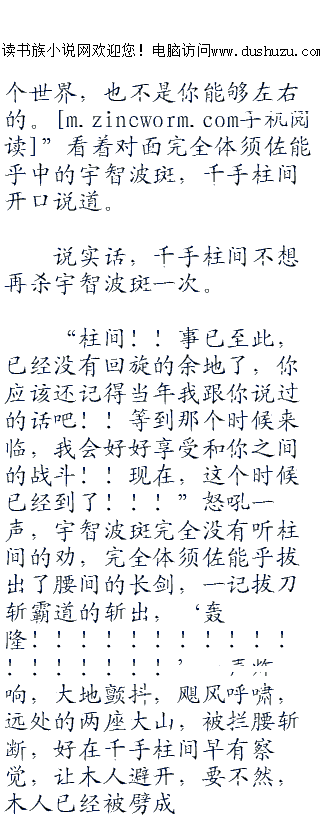 读书族小说网欢迎您！电脑访问www.dushuzu.com
个世界，也不是你能够左右
的。[m.zincworm.com手机阅
读]”看着对面完全体须佐能
乎中的宇智波斑，千手柱间
开口说道。
说实话，千手柱间不想
再杀宇智波斑一次。
“柱间！！事已至此，
已经没有回旋的余地了，你
应该还记得当年我跟你说过
的话吧！！等到那个时候来
临，我会好好享受和你之间
的战斗！！现在，这个时候
已经到了！！！”怒吼一
声，宇智波斑完全没有听柱
间的劝，完全体须佐能乎拔
出了腰间的长剑，一记拔刀
斩霸道的斩出，‘轰
隆！！！！！！！！！！！！
！！！！！！！’一声炸
响，大地颤抖，飓风呼啸，
远处的两座大山，被拦腰斩
断，好在千手柱间早有察
觉，让木人避开，要不然，
木人已经被劈成